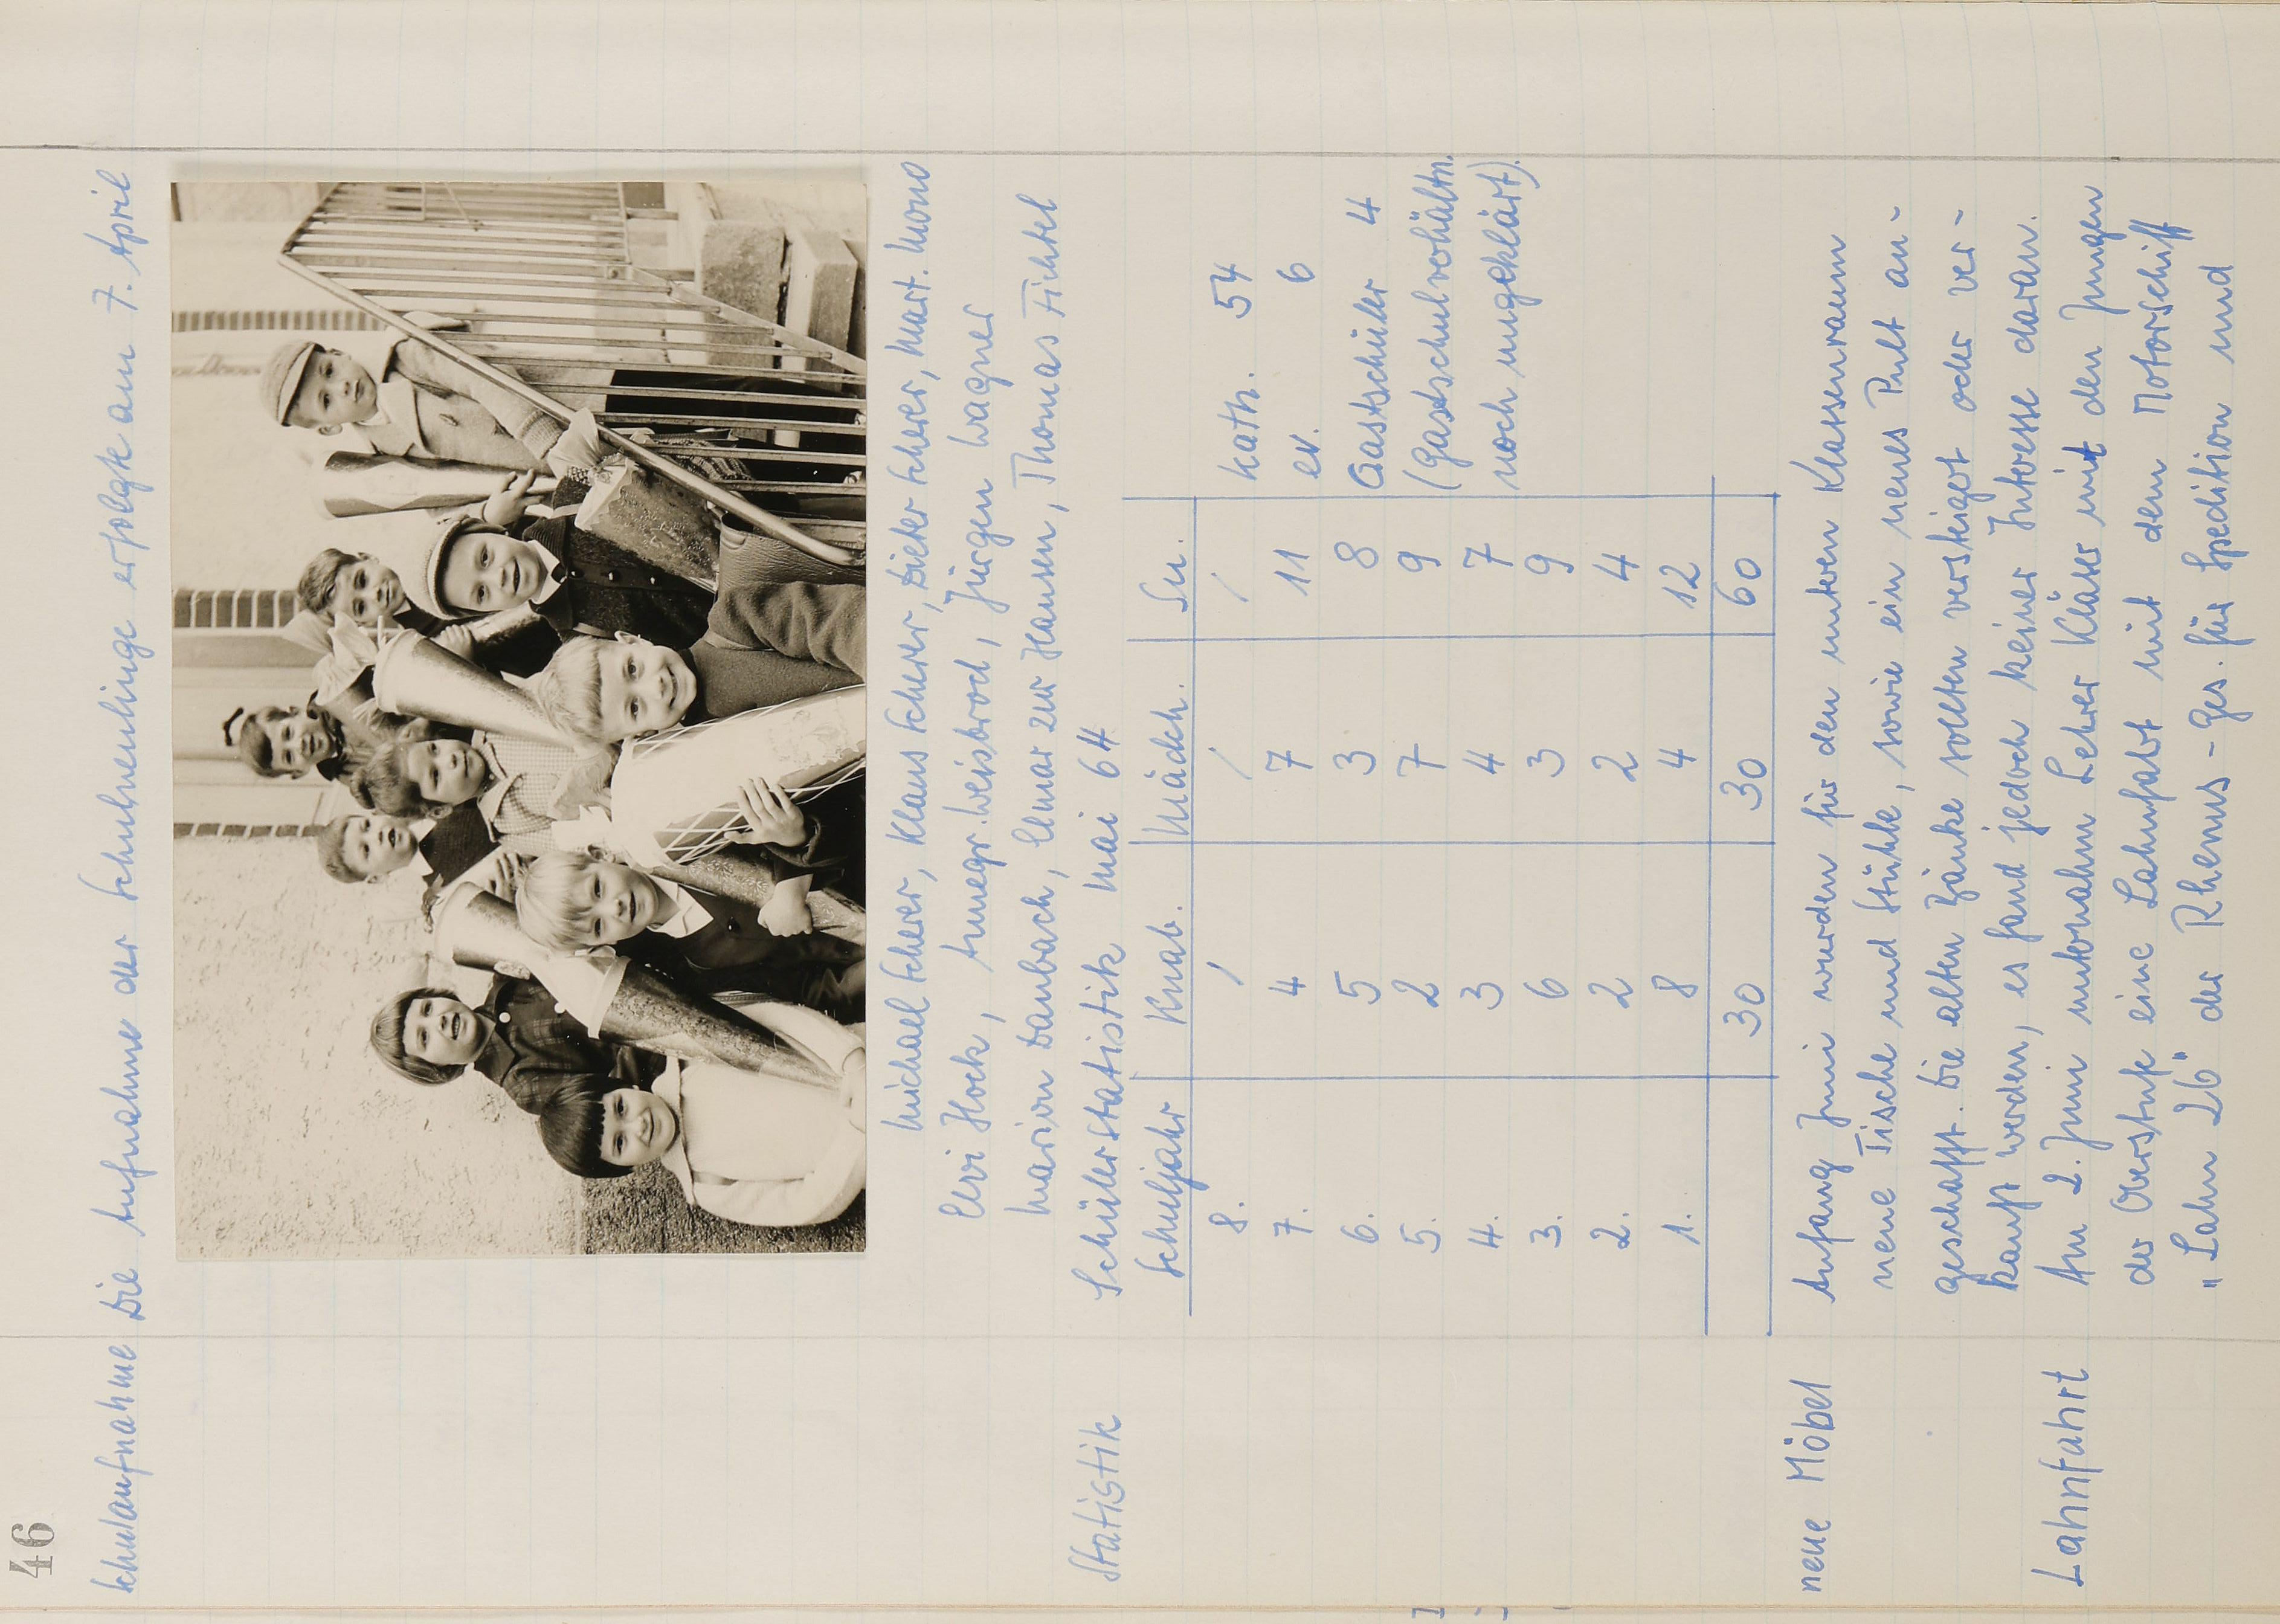 46
Schulaufnahme Die Aufnahme der Schulneulinge erfolgte am 7. April
Michael Scherer, Klaus Scherer, Dieter Scherer, Mart. Mono
Elvi Hock, Annegr. Weisbrod, Jürgen Wagner
Marion Daubach, Elmar zur Hausen, Thomas Fichtel
Statistik Schülerstatistik Mai 64
Schuljahr Knab. Mädch. Su.
8. / / / kath. 54
7. 4 7 11 ev. 6
6. 5 3 8 Gastschüler 4
5. 2 7 9 (Gastschulverhältn.
4. 3 4 7 noch ungeklärt).
3. 6 3 9
2. 2 2 4
1. 8 4 12
30 30 60
neue Möbel Anfang Juni wurden für den unteren Klassenraum
neue Tische und Stühle, sowie ein neues Pult an-
geschafft. Die alten Bänke sollten versteigert oder ver-
kauft werden, es fand jedoch keiner Interesse daran.
Lahnfahrt Am 2. Juni unternahm Lehrer Kläser mit den Jungen
der Oberstufe eine Lahnfahrt mit dem Motorschiff
"Lahn 26" der Rhenus-Ges. für Spedition und